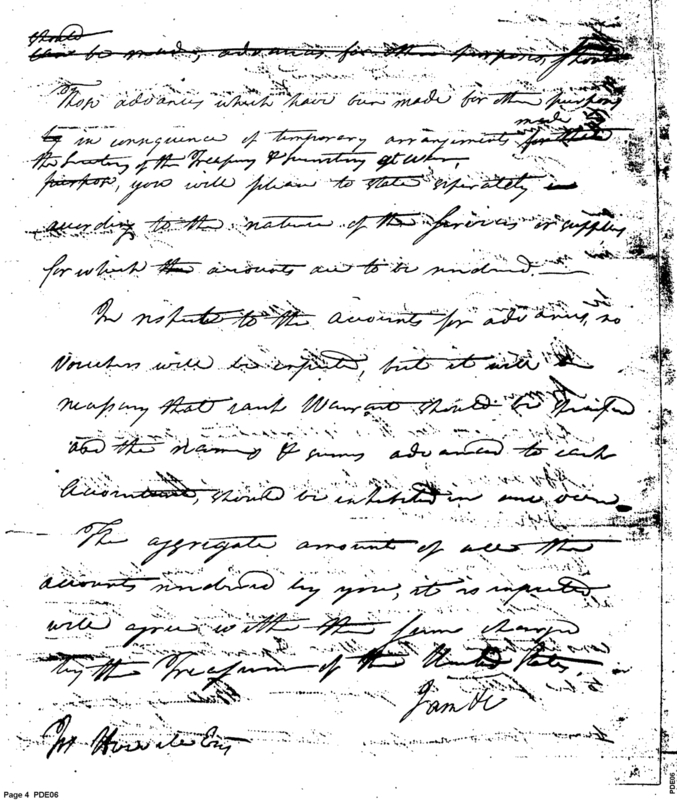 should
be made, advances for other purposes, should
Those advances which have been made for other purposes
made
in consequence of temporary arrangements for these
the Secretary of the Treasury & ministry of war,
purpose, you will please to state separately
according to the nature of the Services or supplies
for which the accounts are to be rendered. —
In respect to the accounts for advances, no
Vouchers will be expected, but it will be
necessary that each Warrant should be specified
and the names & sums advanced to each
Accountant, should be exhibited in one view
The aggregate amount of all the
accounts rendered by you, it is expected
will agree with the sums charged
by the Treasurer of the United States.
I am &c
Jos Howell Esq
Page 4 PDE06
PDE06